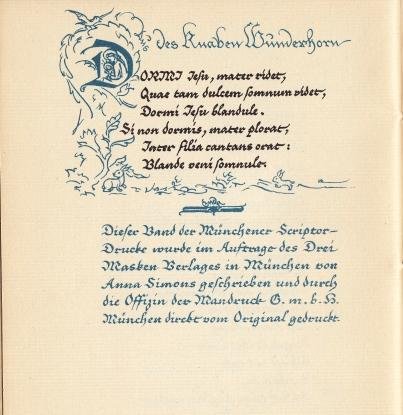 Aus des Knaben Wunderhorn
DORMI Jesu, mater ridet,
Quae tam dulcem somnum videt,
Dormi Jesu blandule.
Si non dormis, mater plorat,
Inter filia cantans orat:
Blande veni somnule.
Ende
Dieser Band der Münchener Scriptor-
Drucke wurde im Auftrage des Drei
Masken Verlages in München von
Anna Simons geschrieben und durch
die Offizin der Mandruck G. m. b. H.
München direkt vom Original gedruckt.